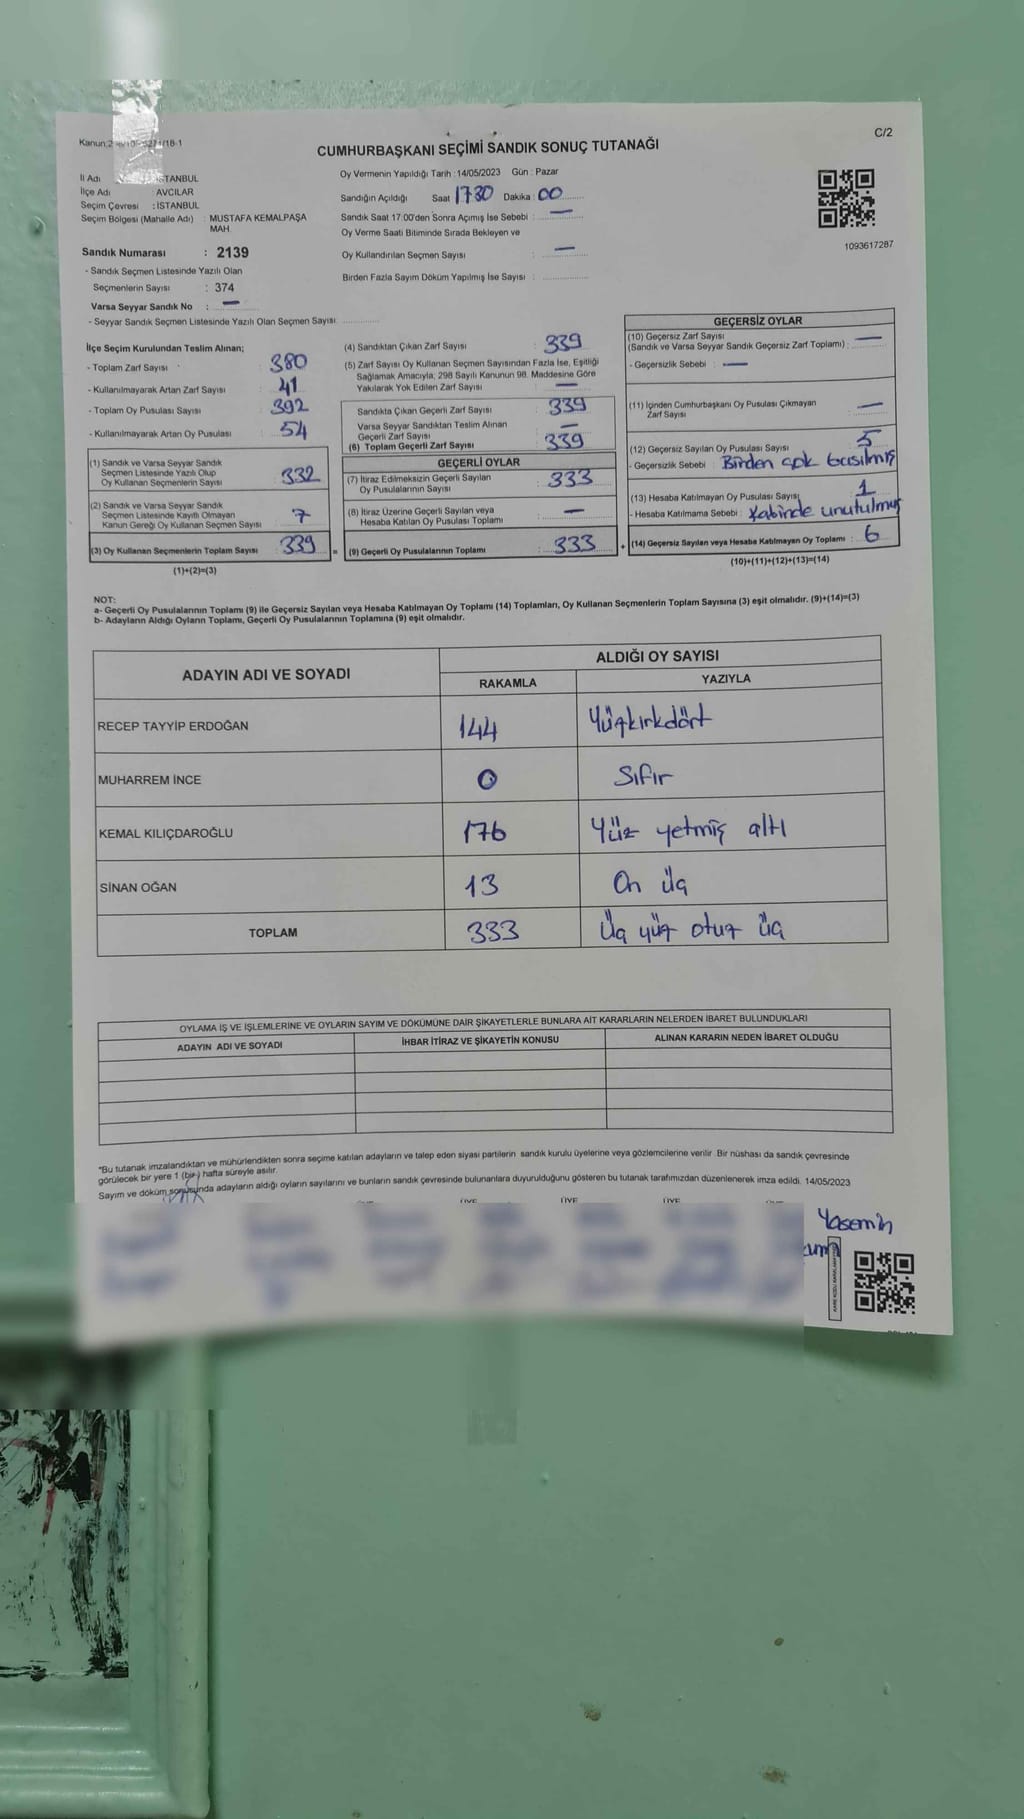 C/2
CUMHURBAŞKANI SEÇİMİ SANDIK SONUÇ TUTANAĞI
İl Adı : İSTANBUL
İlçe Adı : AVCILAR
Seçim Çevresi : İSTANBUL
Seçim Bölgesi (Mahalle Adı) : MUSTAFA KEMALPAŞA MAH.
Sandık Numarası : 2139
- Sandık Seçmen Listesinde Yazılı Olan
Seçmenlerin Sayısı : 374
Varsa Seyyar Sandık No : —
- Seyyar Sandık Seçmen Listesinde Yazılı Olan Seçmen Sayısı:
Oy Vermenin Yapıldığı Tarih :14/05/2023 Gün : Pazar
Sandığın Açıldığı Saat 1730 Dakika : 00
Sandık Saat 17:00'den Sonra Açımış İse Sebebi : —
Oy Verme Saati Bitiminde Sırada Bekleyen ve
Oy Kullandırılan Seçmen Sayısı : —
Birden Fazla Sayım Döküm Yapılmış İse Sayısı :
1093617287
İlçe Seçim Kurulundan Teslim Alınan;
- Toplam Zarf Sayısı : 380
- Kullanılmayarak Artan Zarf Sayısı : 41
- Toplam Oy Pusulası Sayısı : 392
- Kullanılmayarak Artan Oy Pusulası : 54
(1) Sandık ve Varsa Seyyar Sandık
Seçmen Listesinde Yazılı Olup
Oy Kullanan Seçmenlerin Sayısı : 332
(2) Sandık ve Varsa Seyyar Sandık
Seçmen Listesinde Kayıtlı Olmayan
Kanun Gereği Oy Kullanan Seçmen Sayısı : 7
(3) Oy Kullanan Seçmenlerin Toplam Sayısı : 339
(1)+(2)=(3)
(4) Sandıktan Çıkan Zarf Sayısı : 339
(5) Zarf Sayısı Oy Kullanan Seçmen Sayısından Fazla İse, Eşitliği
Sağlamak Amacıyla; 298 Sayılı Kanunun 98. Maddesine Göre
Yakılarak Yok Edilen Zarf Sayısı : —
Sandıkta Çıkan Geçerli Zarf Sayısı : 339
Varsa Seyyar Sandıktan Teslim Alınan
Geçerli Zarf Sayısı : —
(6) Toplam Geçerli Zarf Sayısı : 339
GEÇERLİ OYLAR
(7) İtiraz Edilmeksizin Geçerli Sayılan
Oy Pusulalarının Sayısı : 333
(8) İtiraz Üzerine Geçerli Sayılan veya
Hesaba Katılan Oy Pusulası Toplamı : —
= (9) Geçerli Oy Pusulalarının Toplamı : 333
GEÇERSİZ OYLAR
(10) Geçersiz Zarf Sayısı
(Sandık ve Varsa Seyyar Sandık Geçersiz Zarf Toplamı) : —
- Geçersizlik Sebebi : —
(11) İçinden Cumhurbaşkanı Oy Pusulası Çıkmayan
Zarf Sayısı : —
(12) Geçersiz Sayılan Oy Pusulası Sayısı : 5
- Geçersizlik Sebebi : Birden çok basılmış
(13) Hesaba Katılmayan Oy Pusulası Sayısı : 1
- Hesaba Katılmama Sebebi : Kabinde unutulmuş
+ (14) Geçersiz Sayılan veya Hesaba Katılmayan Oy Toplamı : 6
(10)+(11)+(12)+(13)=(14)
NOT:
a- Geçerli Oy Pusulalarının Toplamı (9) ile Geçersiz Sayılan veya Hesaba Katılmayan Oy Toplamı (14) Toplamları, Oy Kullanan Seçmenlerin Toplam Sayısına (3) eşit olmalıdır. (9)+(14)=(3)
b- Adayların Aldığı Oyların Toplamı, Geçerli Oy Pusulalarının Toplamına (9) eşit olmalıdır.
ADAYIN ADI VE SOYADI ALDIĞI OY SAYISI
RAKAMLA YAZIYLA
RECEP TAYYİP ERDOĞAN 144 Yüzkırkdört
MUHARREM İNCE 0 Sıfır
KEMAL KILIÇDAROĞLU 176 Yüz yetmiş altı
SİNAN OĞAN 13 On üç
TOPLAM 333 Üç yüz otuz üç
OYLAMA İŞ VE İŞLEMLERİNE VE OYLARIN SAYIM VE DÖKÜMÜNE DAİR ŞİKAYETLERLE BUNLARA AİT KARARLARIN NELERDEN İBARET BULUNDUKLARI
ADAYIN ADI VE SOYADI İHBAR İTİRAZ VE ŞİKAYETİN KONUSU ALINAN KARARIN NEDEN İBARET OLDUĞU
*Bu tutanak imzalandıktan ve mühürlendikten sonra seçime katılan adayların ve talep eden siyasi partilerin sandık kurulu üyelerine veya gözlemcilerine verilir. Bir nüshası da sandık çevresinde
görülecek bir yere 1 (bir) hafta süreyle asılır.
Sayım ve döküm sonucunda adayların aldığı oyların sayılarını ve bunların sandık çevresinde bulunanlara duyurulduğunu gösteren bu tutanak tarafımızdan düzenlenerek imza edildi. 14/05/2023
ÜYE ÜYE ÜYE
Yasemin